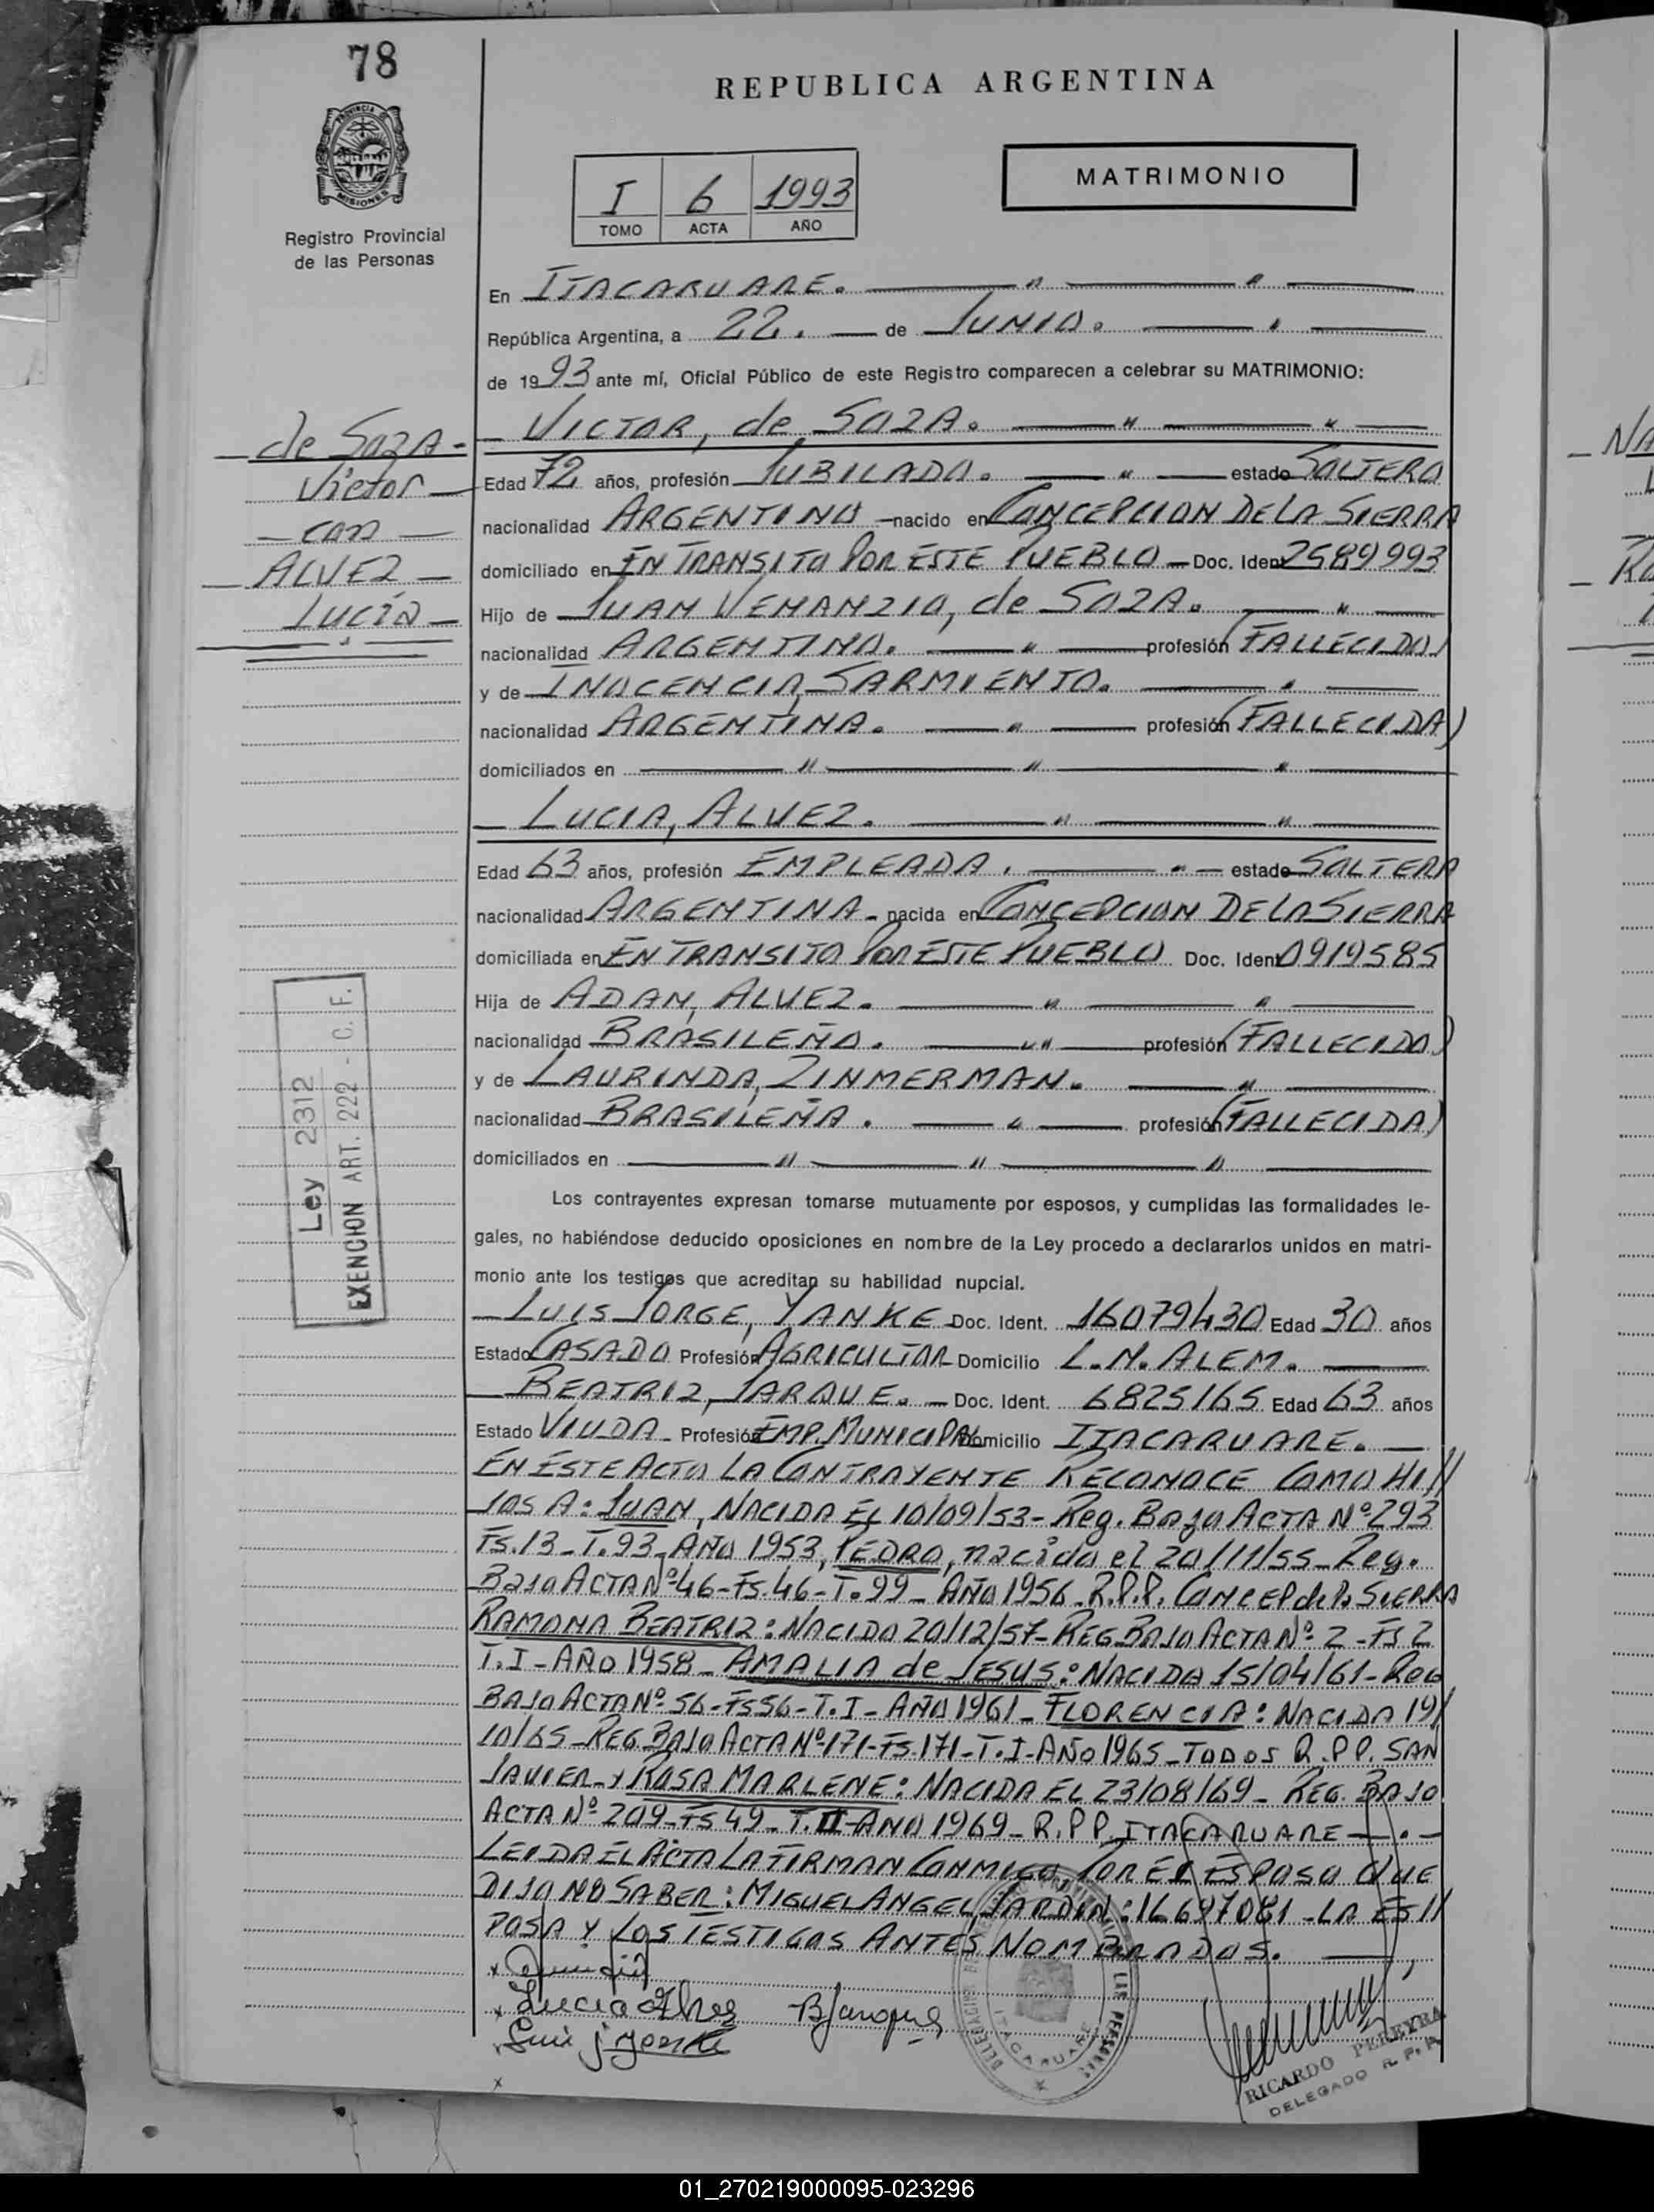 78
REPUBLICA ARGENTINA
PROVINCIA DE
MISIONES
Registro Provincial
de las Personas
I 6 1993
TOMO ACTA AÑO
MATRIMONIO
En ITACARUARE.
República Argentina, a 22. de JUNIO.
de 1993 ante mí, Oficial Público de este Registro comparecen a celebrar su MATRIMONIO:
de SOZA -
Victor
- con -
ALVEZ -
LUCIA -
- VICTOR, de SOZA.
Edad 72 años, profesión JUBILADO. estado SOLTERO
nacionalidad ARGENTINO - nacido en CONCEPCION DE LA SIERRA
domiciliado en EN TRANSITO POR ESTE PUEBLO - Doc. Ident 2589993
Hijo de JUAN VENANZIO, de SOZA.
nacionalidad ARGENTINO. profesión (FALLECIDO)
y de INOCENCIA, SARMIENTO.
nacionalidad ARGENTINA. profesión (FALLECIDA)
domiciliados en
- LUCIA, ALVEZ.
Edad 63 años, profesión EMPLEADA. estado SOLTERA
nacionalidad ARGENTINA - nacida en CONCEPCION DE LA SIERRA
domiciliada en EN TRANSITO POR ESTE PUEBLO Doc. Ident 0919585
Hija de ADAN, ALVEZ.
nacionalidad BRASILEÑO. profesión (FALLECIDO)
y de LAURINDA, ZINMERMAN.
nacionalidad BRASILEÑA. profesión (FALLECIDA)
domiciliados en
Los contrayentes expresan tomarse mutuamente por esposos, y cumplidas las formalidades le-
gales, no habiéndose deducido oposiciones en nombre de la Ley procedo a declararlos unidos en matri-
monio ante los testigos que acreditan su habilidad nupcial.
Ley 2312
EXENCION ART. 222 - C. F.
- LUIS JORGE, YANKE Doc. Ident. 16079430 Edad 30 años
Estado CASADO Profesión AGRICULTOR Domicilio L.N. ALEM.
- BEATRIZ, JARQUE. - Doc. Ident. 6825165 Edad 63 años
Estado VIUDA - Profesión EMP. MUNICIPAL Domicilio ITACARUARE. -
EN ESTE ACTO LA CONTRAYENTE RECONOCE COMO HI//
JOS A: JUAN, NACIDO EL 10/09/53 - Reg. Bajo ACTA Nº 293
Fs. 13 - T. 93 - AÑO 1953, PEDRO, nacido el 20/11/55 - Reg.
BAJO ACTA Nº 46 - Fs. 46 - T. 99 - AÑO 1956 - R.P.P. CONCEP de la SIERRA
RAMONA BEATRIZ: NACIDO 20/12/57 - REG BAJO ACTA Nº 2 - FS 2
T. I - AÑO 1958 - AMALIA de JESUS: NACIDA 15/04/61 - REG
BAJO ACTA Nº 56 - FS 56 - T. I - AÑO 1961 - FLORENCIA: NACIDA 19/
10/65 - REG. BAJO ACTA Nº 171 - FS. 171 - T. I - AÑO 1965 - TODOS R.P.P. SAN
JAVIER - Y ROSA MARLENE: NACIDA EL 23/08/69 - REG. BAJO
ACTA Nº 209 - FS 49 - T. II - AÑO 1969 - R.P.P. ITACARUARE - . -
LEIDA EL ACTA LA FIRMAN CONMIGO POR EL ESPOSO QUE
DIJO NO SABER: MIGUEL ANGEL JARDIN: 16697081 - LA ES//
POSA Y LOS TESTIGOS ANTES NOMBRADOS.
Lucia Alves BJarque
Luis j Yanke
ITACARUARE
RICARDO PEREYRA
DELEGADO R. P. P.
01_270219000095-023296